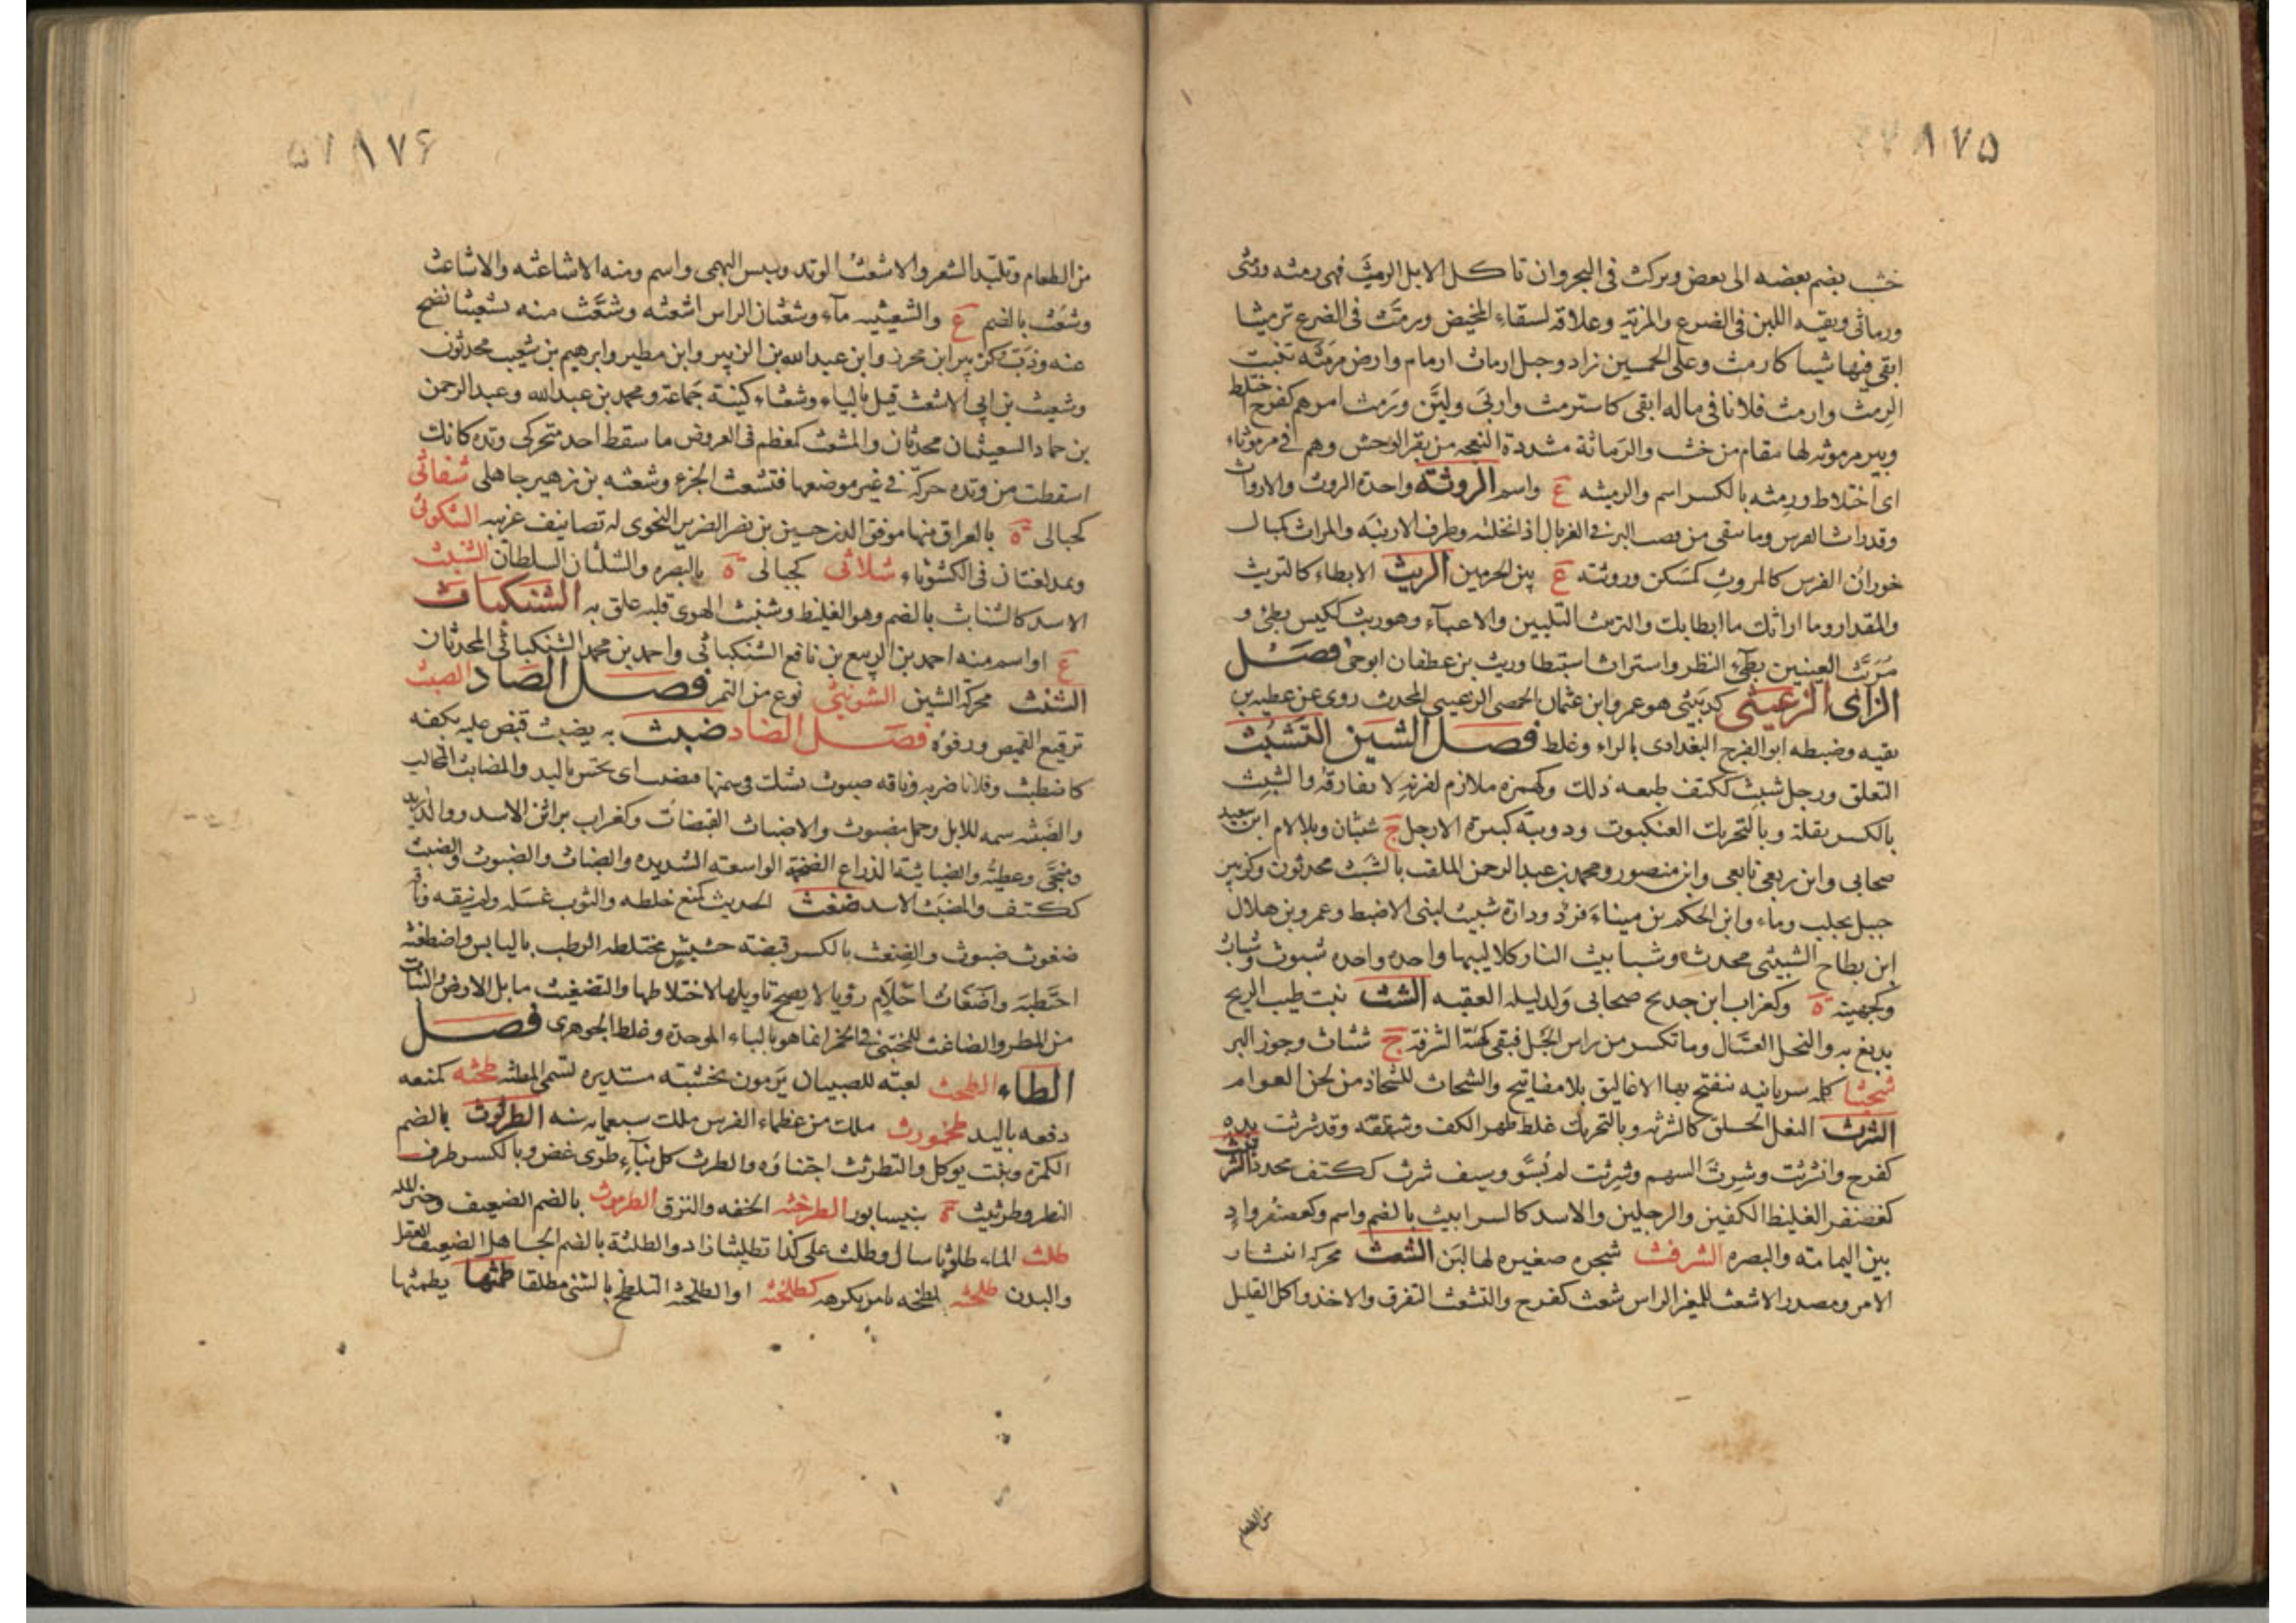 ١٧۵
خشب يضم بعضه الى بعض ويركب فى البحر وان تاكل الابل الرمث فهى رمثه ورمثى
ورماثى وبقيه اللبن فى الضرع والمزيه وعلاقه لسقاء المخيض ورمّث فى الضرع ترميثا
ابقى فيها شيئا كارمث وعلى الخمسين زاد وحبل ارماث ارمام وارض مرمثه تنبت
الرمث وارمث فلانا فى ماله ابقى كاسترمث واربى وليّن ورمث امرهم كفرح اختلط
وبير مرموثه لها مقام من خشب والرماثة مشددة النعجه من بقر الوحش وهم فى مرموثاء
اى اختلاط ورمثه بالكسر اسم والرميثه ع واسم الروثة واحدة الروث والارواث
وقد راث الفرس وما بقى من قصب البر فى الغربال اذا نخلته وطرف الارنبه والمراث كمبال
خوران الفرس كالمروث كمسكن ورويثه ع بين الحرمين الريث الابطاء كالتريث
والمقدار وما اراثك ما ابطا بك والتريث التليين والاعياء وهو ريث ككيس بطئ و
مريّث العينين بطئ النظر واستراث استبطا وريث بن غطفان ابو حى فصل
الزاى الزعيثى كدبيثى هو عمرو ابن عثمان الحمصى الزعيثى المحدث روى عن عطيه بن
بقيه وضبطه ابو الفرج البغدادى بالراء وغلط فصل الشين التشبث
التعلق ورجل شبث ككتف طبعه ذلك وكهمزه ملازم لقرنه لا يفارقه والشبث
بالكسر بقلة وبالتحريك العنكبوت ودويبة كبيرة الارجل ج شبثان وبلا لام ابن سعيد
صحابى وابن ربعى تابعى وابن منصور ومحمد بن عبد الرحمن الملقب بالشبث محدثون وكزبير
جبل بحلب وماء وابن الحكم بن ميناء فرد ودارة شبيث لبنى الاضبط وعمرو بن هلال
ابن بطاح الشبيثى محدث وشبابيث النار كلاليبها واحده شبوث وشباث
وكجهينة ه وكغراب ابن حديج صحابى ولد ليله العقبه الشث نبت طيب الريح
يدبغ به والنحل العسّال وما تكسر من راس الجبل فبقى كهيئة الشرفة ج شثاث وجوز البر
شحيثا كلمه سريانيه تنفتح بها الاغاليق بلا مفاتيح والشحاث للشحاذ من لحن العوام
الشرث النعل الخلق كالشرثه وبالتحريك غلظ ظهر الكف وتشققه وقد شرثت يده
كفرح وانشرثت وشرث السهم وشرثت لم يسوّ وسيف شرث ككتف محدد الشرنبث
كغضنفر الغليظ الكفين والرجلين والاسد كالشرابث بالضم واسم وكغضنفر واد
بين اليمامه والبصره الشرفث شجره صغيره لها لبن الشعث محركة انتشار
الامر ومصدر الاشعث للمغبر الراس شعث كفرح والتشعث التفرق والاخذ واكل القليل
من الطعام
١٧۶
من الطعام وتلبّد الشعر والاشعث الوتد ويبس البهمى واسم ومنه الاشاعثه والاشاعث
وشعث بالضم ع والشعيثيه ماء وشعثان الراس اشعثه وشعّث منه تشعيثا نضح
عنه وذب وكزبير ابن محرز وابن عبد الله بن الزبير وابن مطير وابرهيم بن شعيب محدثون
وشعيث بن ابى الاشعث قيل بالباء وشعثاء كنية جماعة ومحمد بن عبد الله وعبد الرحمن
بن حماد الشعيثيان محدثان والمشعث كمعظم فى العروض ما سقط احد متحركى وتده كانك
اسقطت من وتده حركة فى غير موضعها فتشعث الجزء وشعثه بن زهير جاهلى شفاثى
كحبالى ه بالعراق منها موفق الدين حسين بن نصر الضرير النحوى له تصانيف غريبه الشكوثى
ويمد لغتان فى الكشوثاء شلاثى كحبالى ه بالبصره والشلثان السلطان الشنبث
الاسد كالشنابث بالضم وهو الغليظ وشنبث الهوى قلبه علق به الشنكباث
ع او اسم منه احمد بن الربيع بن نافع الشنكباثى واحمد بن محمد الشنكباثى المحدثان
الشنث محركة الشثن الشونيثى نوع من التمر فصل الصاد الصبث
ترقيع القميص ورفوه فصل الضاد ضبث به يضبث قبض عليه بكفه
كاضطبث وفلانا ضربه وناقه ضبوث تشك فى سمنها فضبث اى تجس باليد والمضابث المخالب
والضبثه سمه للابل وجمل مضبوث والاضباث القبضات وكغراب براثن الاسد ووالد زيد
ومنجى وعطيه والضباثية الذراع الضخمة الواسعه الشديده والضباث والضبوث والضبث
ككتف والمضبث الاسد ضغث الحديث كمنع خلطه والثوب غسله ولم ينقه وناقه
ضغوث ضبوث والضغث بالكسر قبضة حشيش مختلطه الرطب باليابس واضطغثه
احتطبه واضغاث احلام رؤيا لا يصح تاويلها لاختلاطها والتضغيث ما بل الارض والنبات
من المطر والضاغث للمختبئ فى الخمر انما هو بالباء الموحدة وغلط الجوهرى فصل
الطاء الطث لعبة للصبيان يرمون بخشبة مستديره تسمى المطثه طحثه كمنعه
دفعه باليد طخمورث ملك من عظماء الفرس ملك سبعمايه سنه الطرثوث بالضم
الكمرة ونبت يوكل والتطرثث اجتناؤه والطرث كل نبات طرى غض وبالكسر طرف
البظر وطرثيث ة بنيسابور الطرخثه الخفه والنزق الطرموث بالضم الضعيف وخبز المله
طلث الماء طلوثا سال وطلث على كذا تطليثا زاد والطلثة بالضم الجاهل الضعيف العقل
والبدن طلحثه لطخه بامر يكرهه كطلخثه او الطلخثه التلطخ بالشئ مطلقا طمثها يطمثها